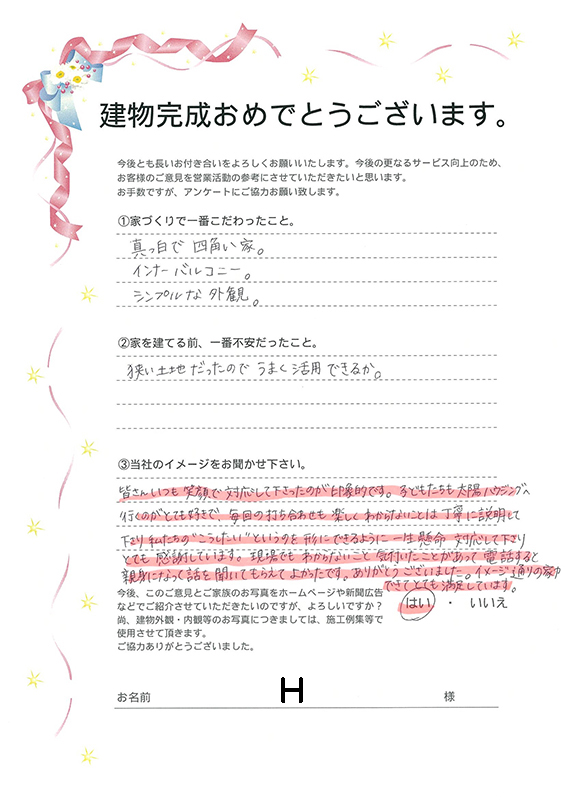 建物完成おめでとうございます。
今後とも長いお付き合いをよろしくお願いいたします。今後の更なるサービス向上のため、
お客様のご意見を営業活動の参考にさせていただきたいと思います。
お手数ですが、アンケートにご協力お願い致します。
①家づくりで一番こだわったこと。
真っ白で 四角い家。
インナーバルコニー。
シンプルな外観。
②家を建てる前、一番不安だったこと。
狭い土地だったので うまく活用できるか。
③当社のイメージをお聞かせ下さい。
皆さんいつも笑顔で対応して下さったのが印象的です。子どもたちも太陽ハウジングへ
行くのがとても好きで、毎回の打ち合わせも楽しくわからないことは丁寧に説明して
下さり私たちの"こうしたい"というのを形にできるように一生懸命対応して下さり
とても感謝しています。現場でもわからないこと気付いたことがあって電話すると
親身になって話を聞いてもらえてよかったです。ありがとうございました。イメージ通りの家が
できてとても満足しています。
今後、このご意見とご家族のお写真をホームページや新聞広告
などでご紹介させていただきたいのですが、よろしいですか?
はい ・ いいえ
尚、建物外観・内観等のお写真につきましては、施工例集等で
使用させて頂きます。
ご協力ありがとうございました。
お名前 H 様